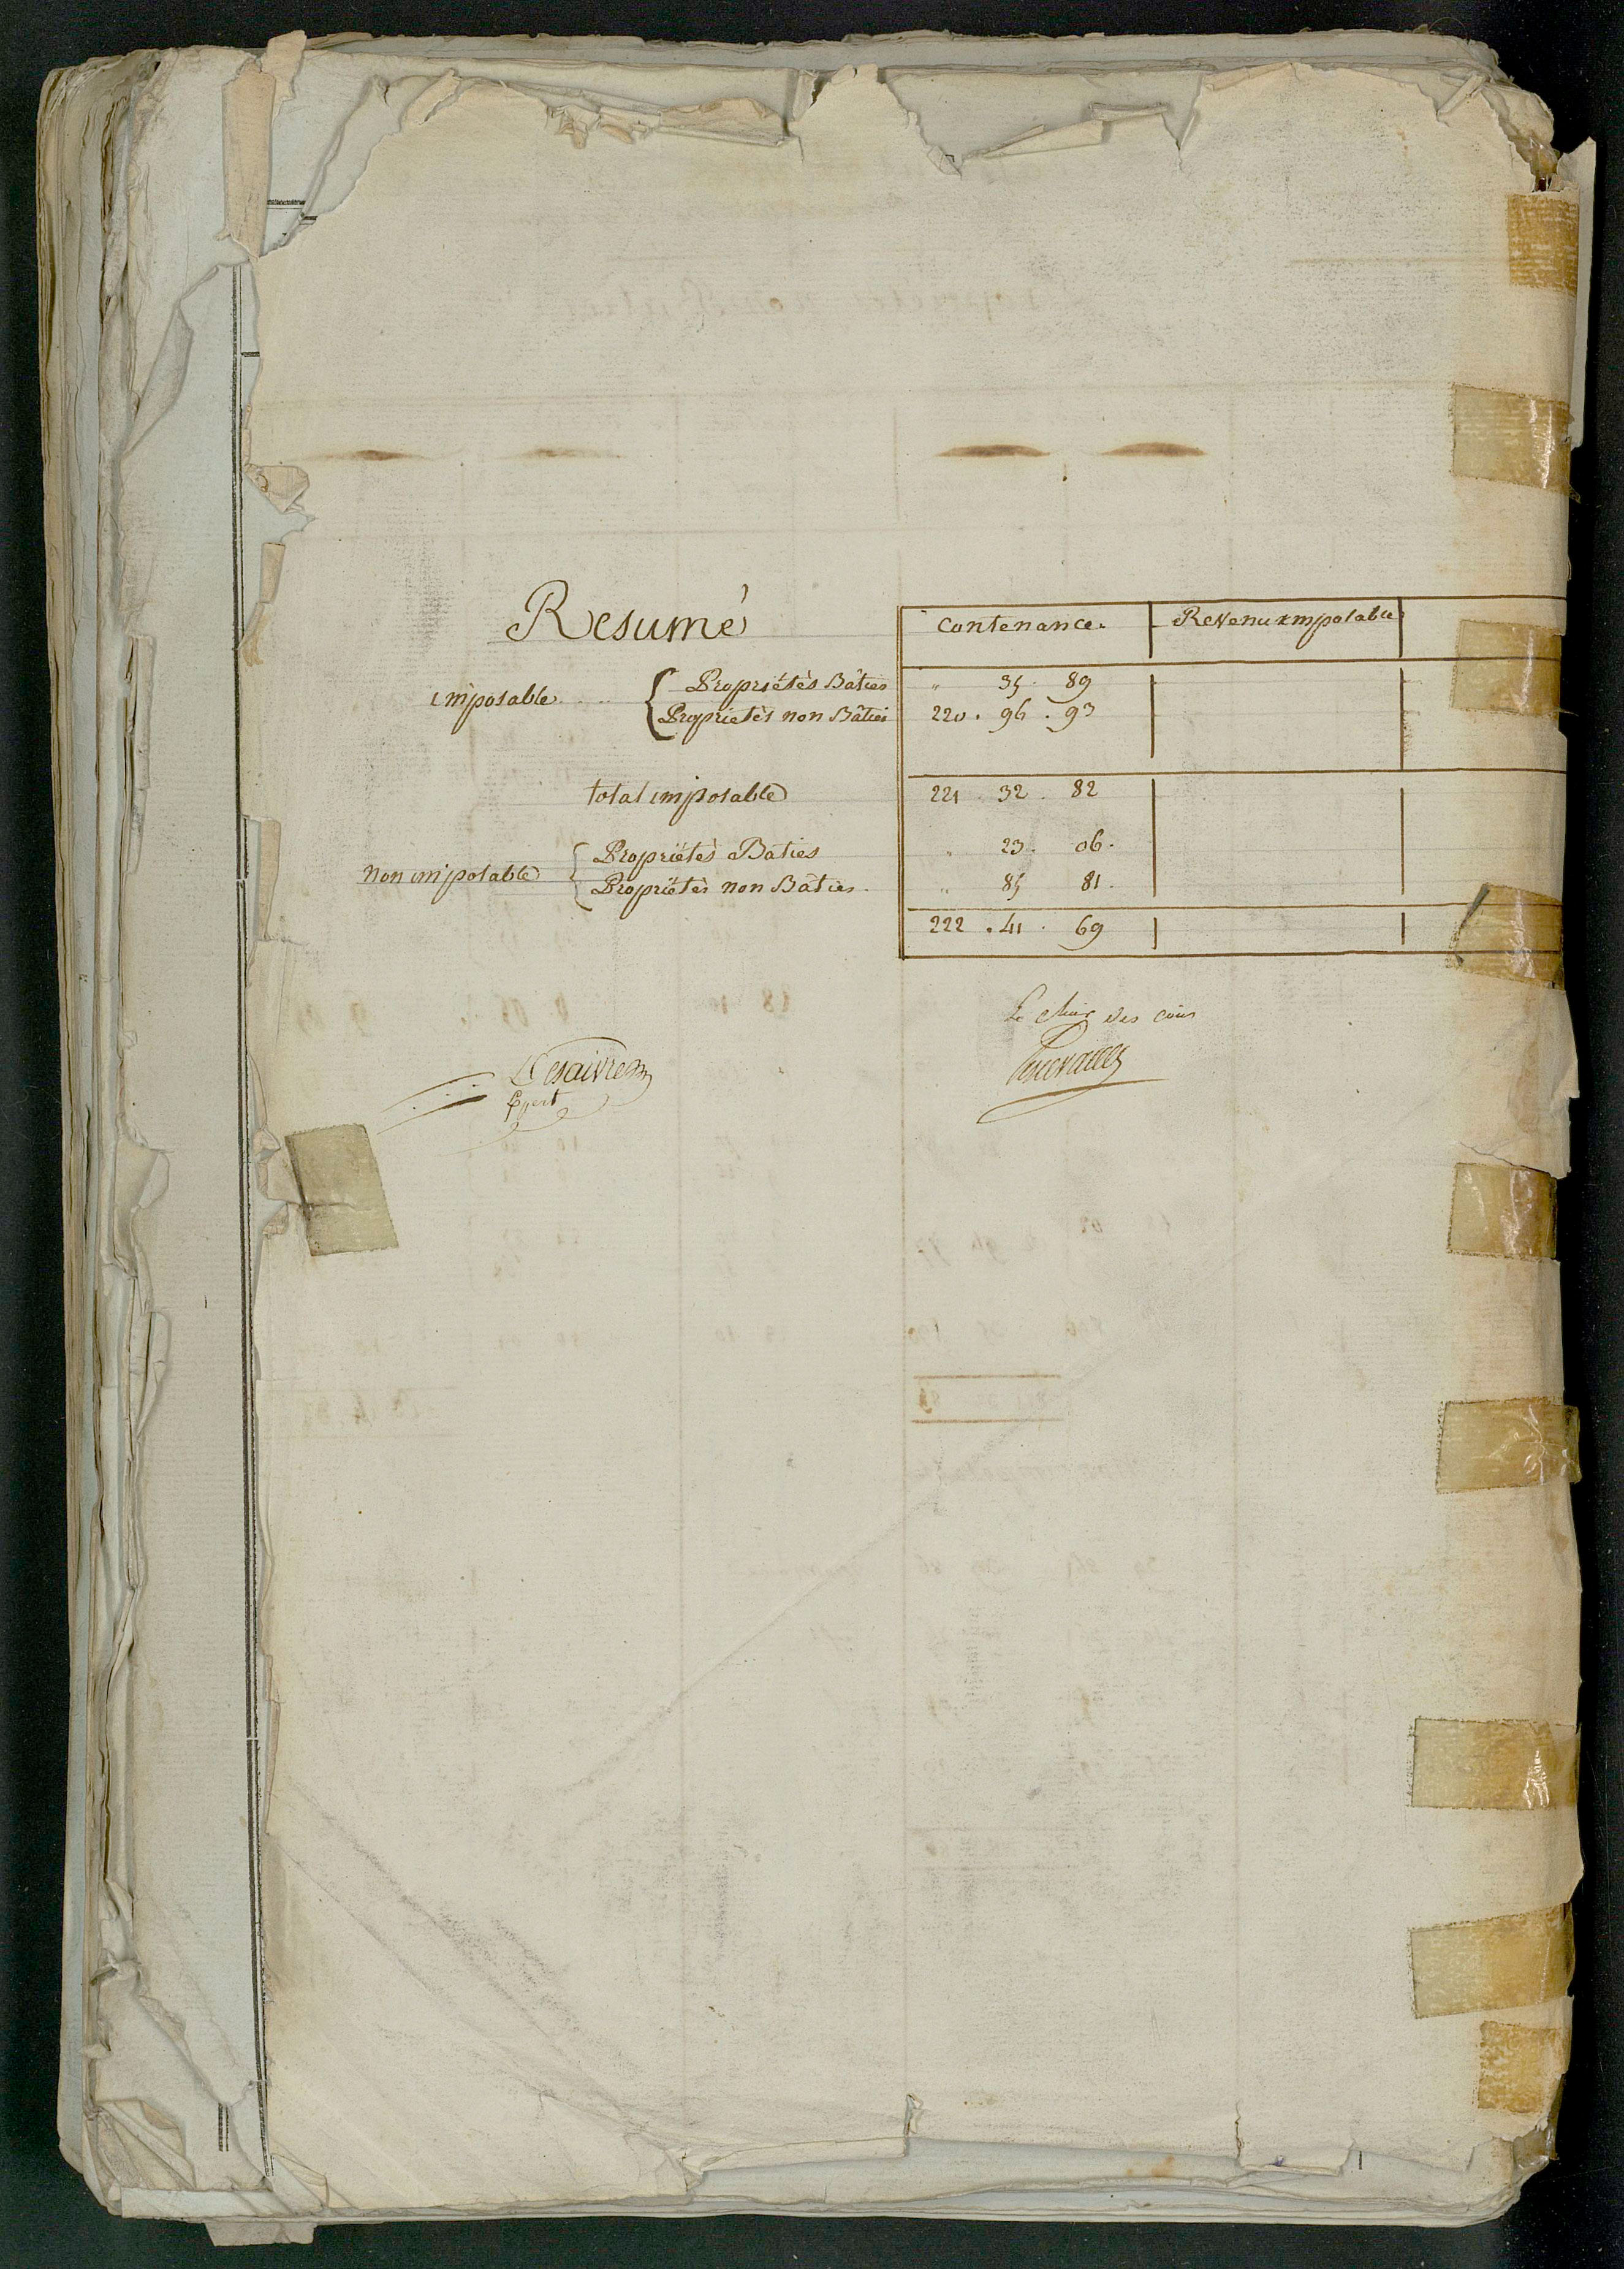 Resumé
contenance. Revenu imposable
imposable { Propriétés Bâties " 35. 89
Propriétés non Bâties 220. 96. 93
total imposable 221. 32. 82
non imposable { Propriétés Baties " 23. 06.
Propriétés non Baties. " 85 81.
222. 41. 69
Le des
Desaivre
Expert